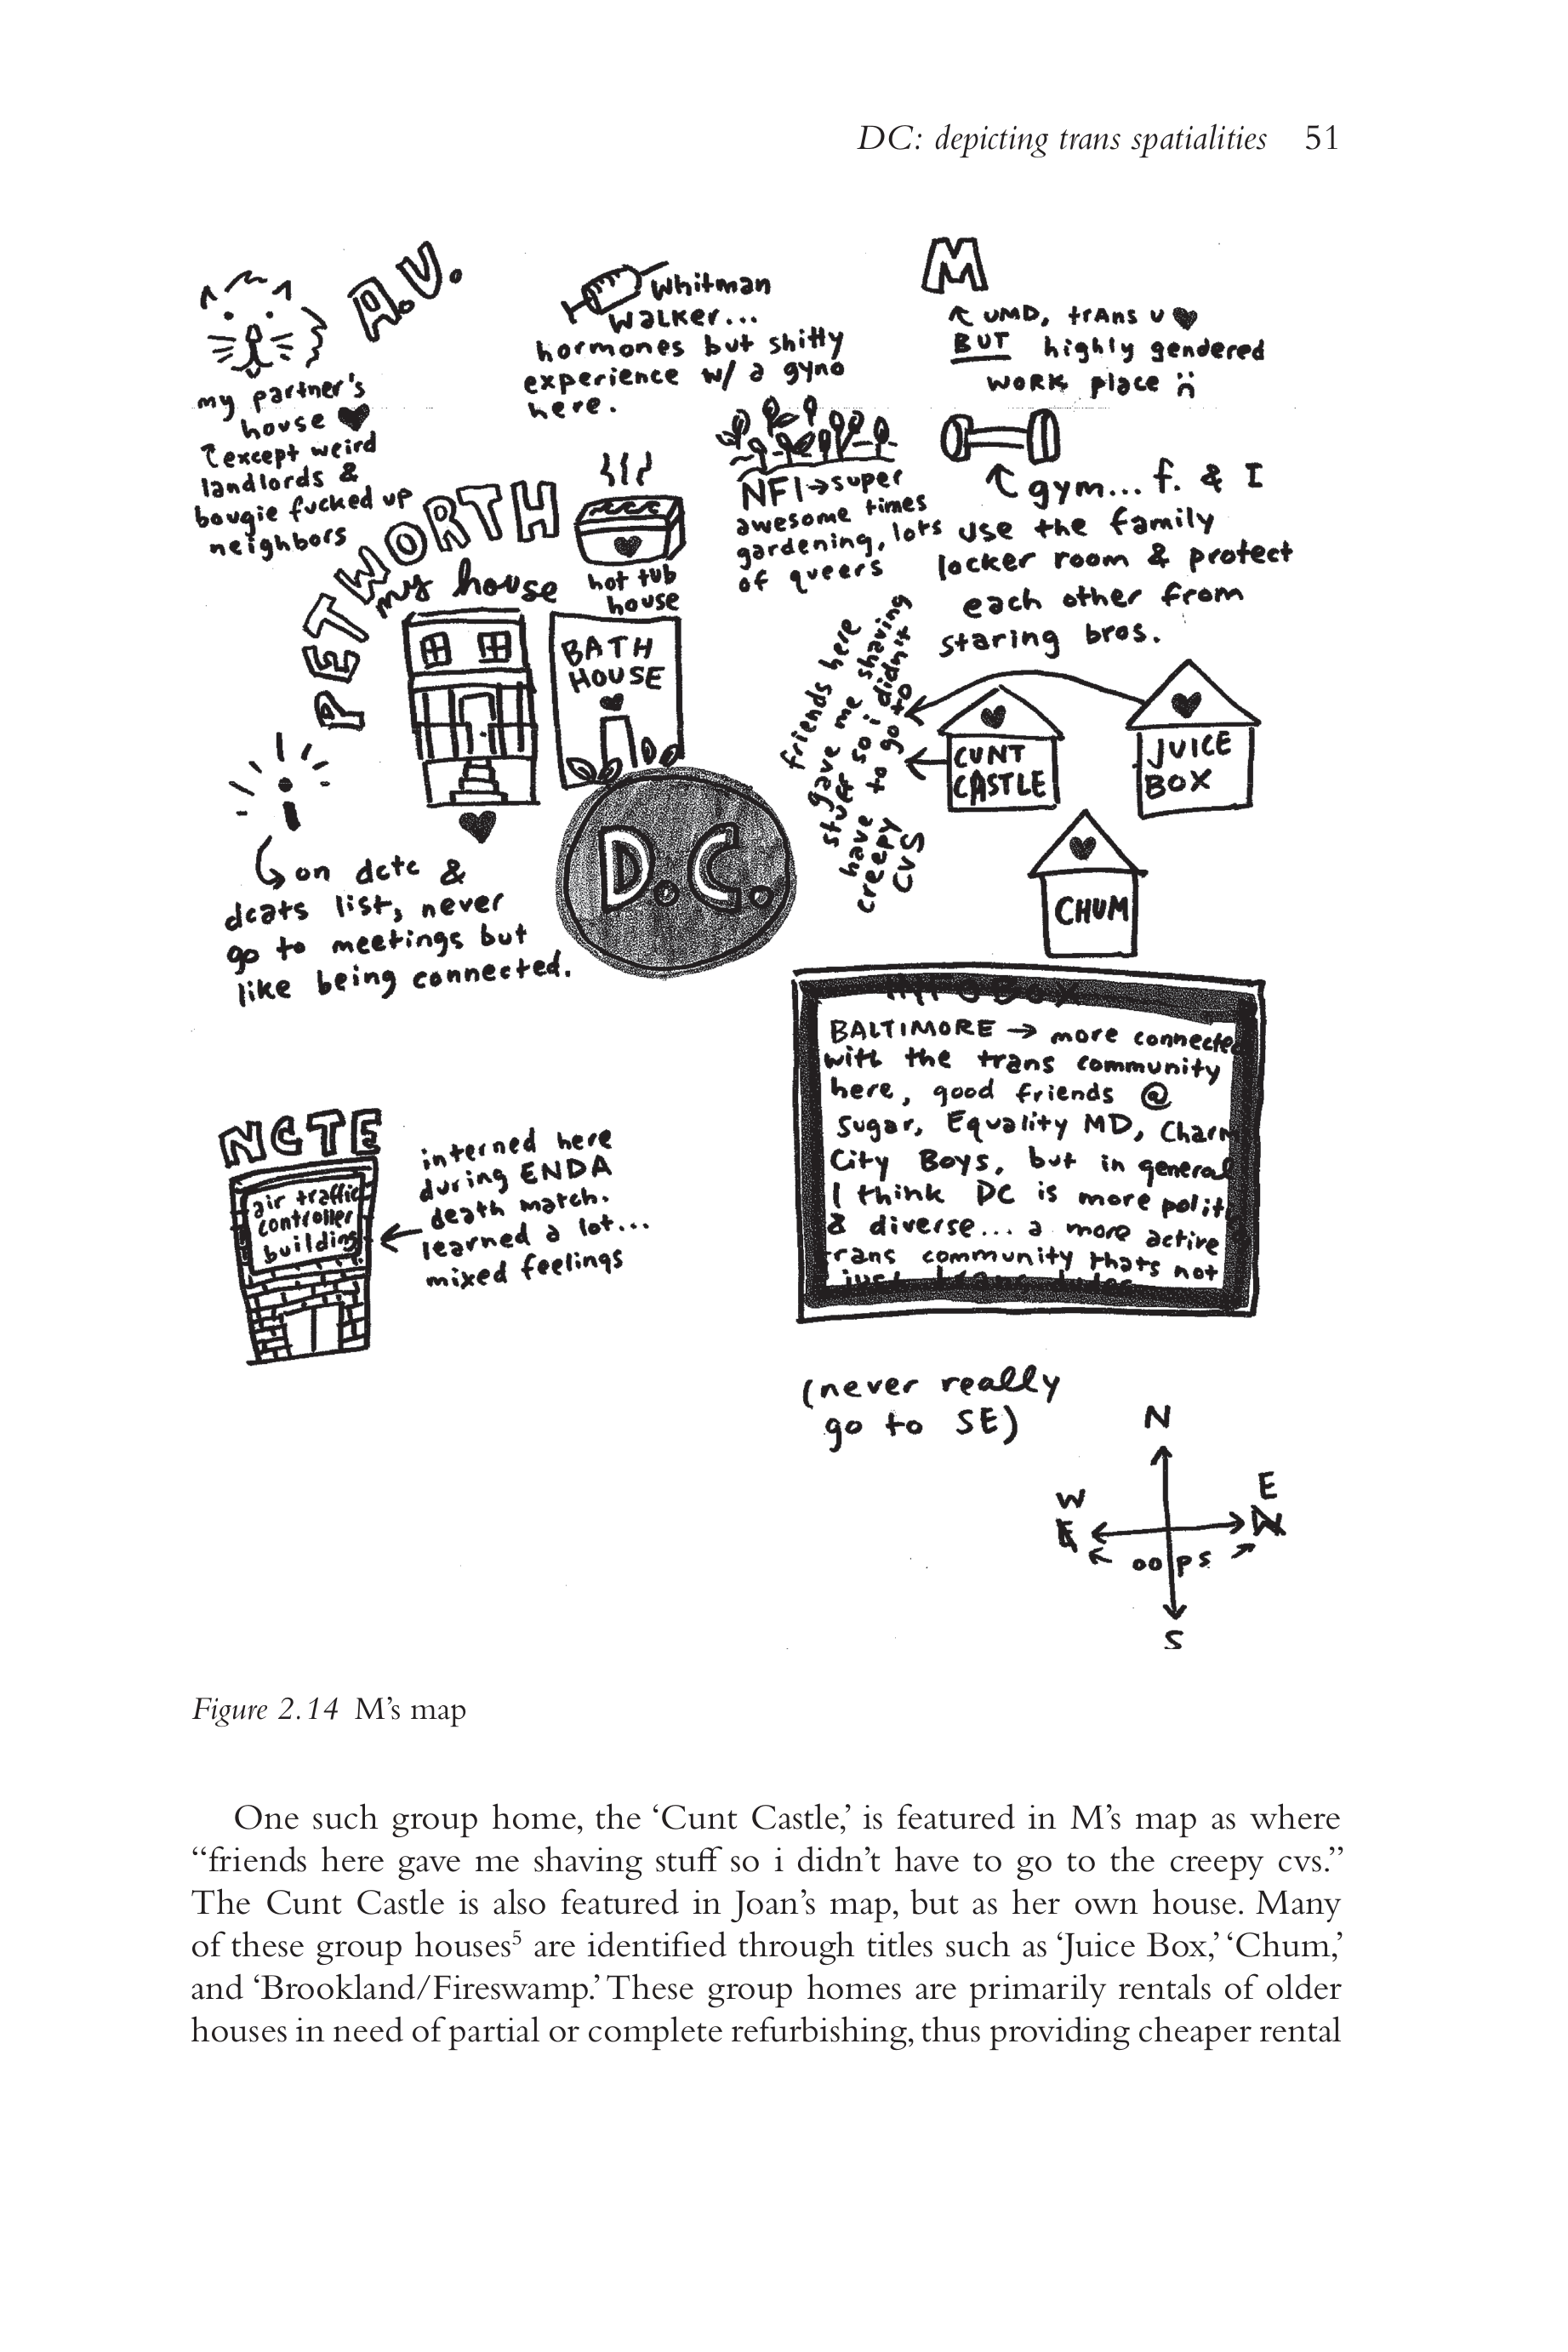 DC: depicting trans spatialities 51
A.V.
my partner's
house
except weird
landlords &
bougie fucked up
neighbors
Whitman
Walker...
hormones but shitty
experience w/ a gyno
here.
M
UMD, trAns U
BUT highly gendered
work place
NFI → super
awesome times
gardening, lots
of queers
gym... f. & I
use the family
locker room & protect
each other from
staring bros.
PETWORTH
my house
hot tub
house
BATH
HOUSE
friends here
gave me shaving
stuff so i didn't
have to go to
creepy
CVS
CUNT
CASTLE
JUICE
BOX
CHUM
D.C.
on dctc &
dcats list, never
go to meetings but
like being connected.
BALTIMORE → more connected
with the trans community
here, good friends @
Sugar, Equality MD, Charm
City Boys, but in general
I think DC is more
& diverse... a more active
trans community thats not
NCTE
air traffic
controller
building
interned here
during ENDA
death match.
learned a lot...
mixed feelings
(never really
go to SE)
N
W E
oops
S
Figure 2.14 M's map
One such group home, the ‘Cunt Castle,’ is featured in M’s map as where
“friends here gave me shaving stuff so i didn’t have to go to the creepy cvs.”
The Cunt Castle is also featured in Joan’s map, but as her own house. Many
of these group houses5 are identified through titles such as ‘Juice Box,’ ‘Chum,’
and ‘Brookland/Fireswamp.’ These group homes are primarily rentals of older
houses in need of partial or complete refurbishing, thus providing cheaper rental